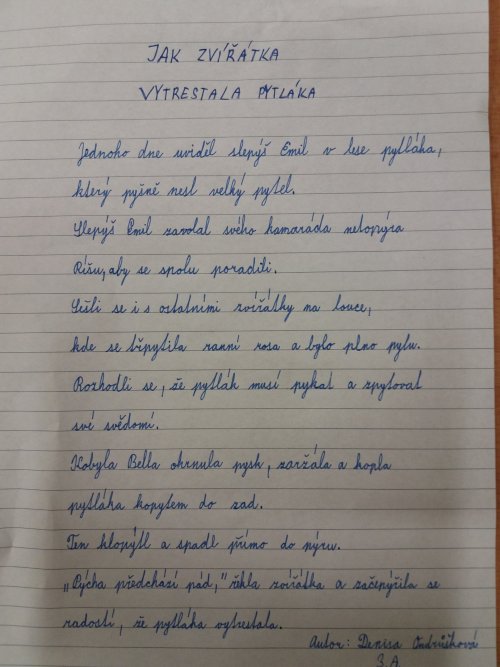 JAK ZVÍŘÁTKA
VYTRESTALA PYTLÁKA
Jednoho dne uviděl slepýš Emil v lese pytláka,
který pyšně nesl velký pytel.
Slepýš Emil zavolal svého kamaráda netopýra
Ríšu, aby se spolu poradili.
Sešli se i s ostatními zvířátky na louce,
kde se třpytila ranní rosa a bylo plno pylu.
Rozhodli se, že pytlák musí pykat a zpytovat
své svědomí.
Kobyla Bella ohrnula pysk, zaržála a kopla
pytláka kopytem do zad.
Ten klopýtl a spadl přímo do výru.
„Pýcha předchází pád," řekla zvířátka a začepýřila se
radostí, že pytláka vytrestala.
Autor: Denisa Ondrůšková